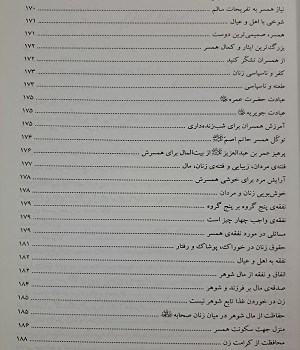 نیاز همسر به تفریحات سالم ۱۷۰
شوخی با اهل و عیال ۱۷۱
همسر، صمیمی‌ترین دوست ۱۷۱
بزرگ‌ترین ایثار و کمال همسر ۱۷۲
از همسرتان تشکر کنید ۱۷۲
کفر و ناسپاسی زنان ۱۷۳
طعنه و ناسپاسی ۱۷۳
عبادت حضرت عمره ۱۷۵
عبادت جویریه ۱۷۵
آموزش همسران برای شب‌زنده‌داری ۱۷۵
توکل همسر حاتم اصم ۱۷۴
پرهیز عمر بن عبدالعزیز از بیت‌المال برای همسرش ۱۷۶
فتنه‌ی مردان، زیبایی و فتنه‌ی زنان، مال ۱۷۷
آرایش مرد برای خوشی همسرش ۱۷۸
خوش‌بویی زنان و مردان ۱۷۸
نفقه‌ی پنج گروه بر پنج گروه ۱۷۹
نفقه‌ی واجب چهار چیز است ۱۷۹
مسائلی در مورد نفقه‌ی همسر ۱۷۹
حقوق زنان در خوراک، پوشاک و رفتار ۱۸۱
نفقه به اهل و عیال ۱۸۲
انفاق و نفقه از مال شوهر ۱۸۲
صدقه‌ی مال بر فرزند و شوهر ۱۸۴
زن در خوردن غذا تابع شوهر نیست ۱۸۵
حفاظت از مال شوهر در میان زنان صحابه ۱۸۵
منزل جهت سکونت همسر ۱۸۶
محافظت از کرامت زن ۱۸۸